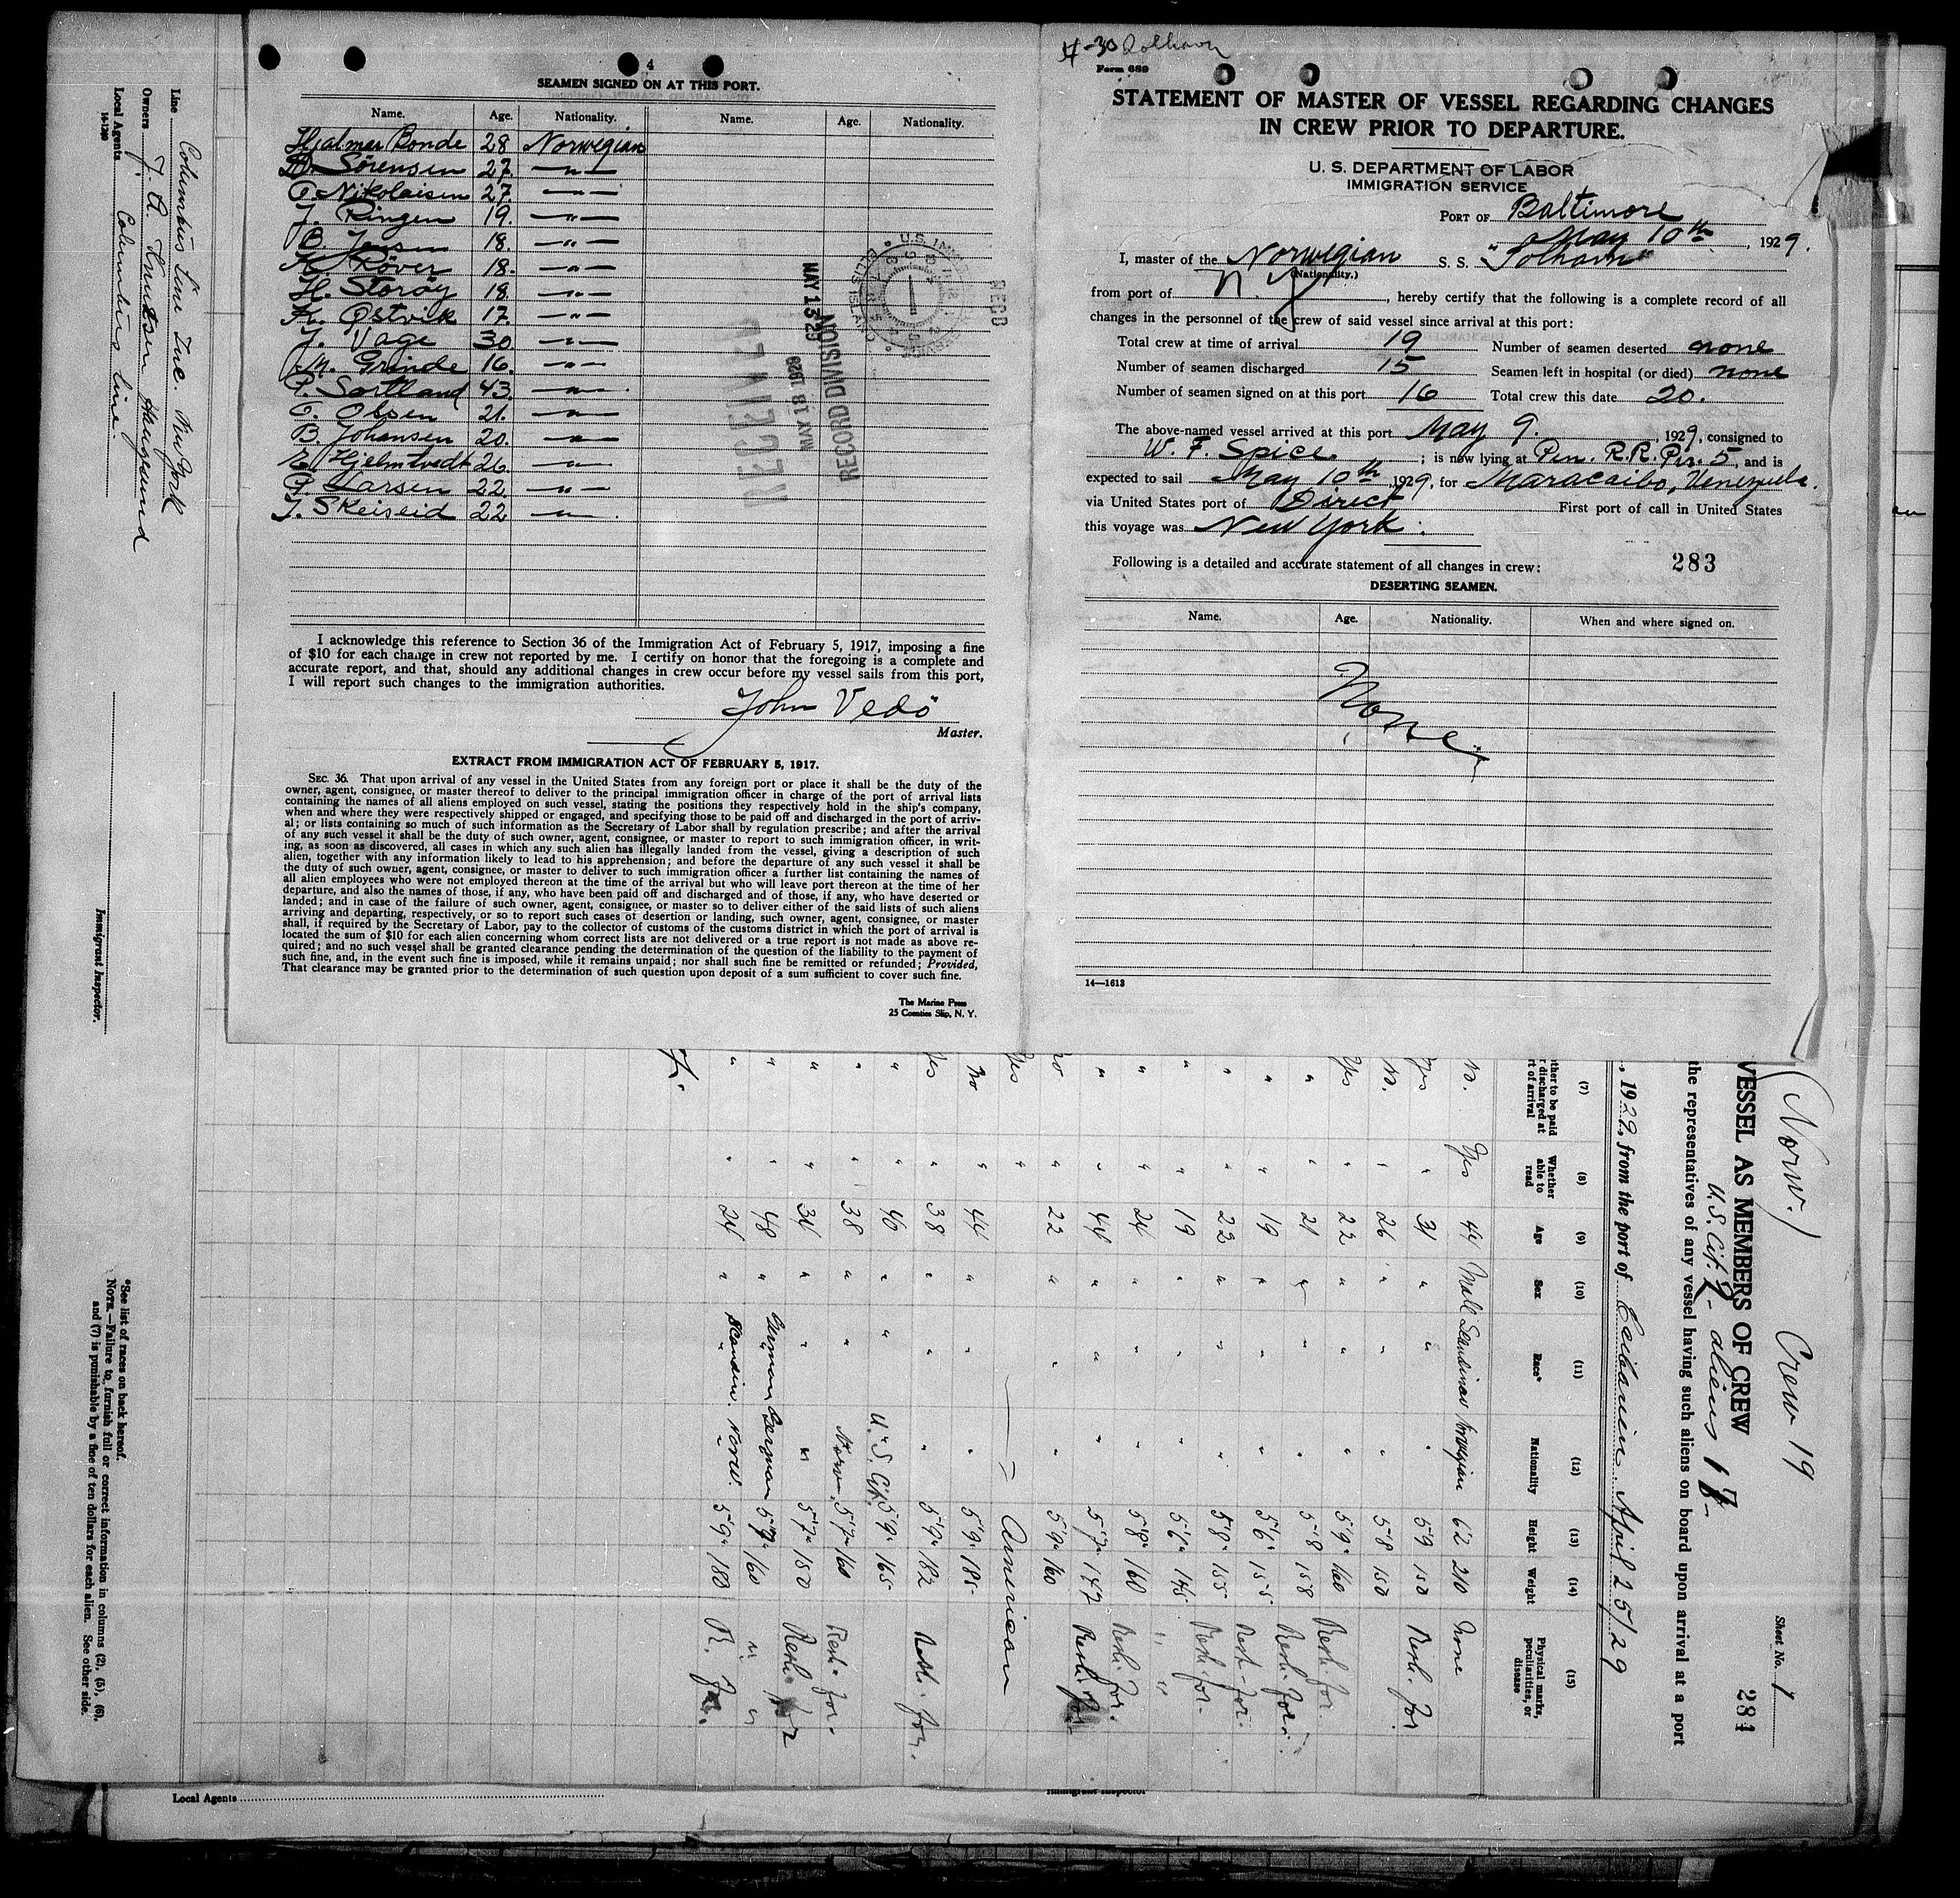 4
SEAMEN SIGNED ON AT THIS PORT.
Name. Age. Nationality. Name. Age. Nationality.
Hjalmar Bonde 28 Norwegian
Sörensen 27. —"—
Nikolaisen 27. —"—
Ringen 19. —"—
B. Jensen 18. —"—
Röver 18. —"—
H. Storöy 18. —"—
Østvik 17. —"—
J. Vage 30. —"—
M. Grinde 16. —"—
Sortland 43. —"—
O. Olsen 21. —"—
B. Johansen 20. —"—
Hjelmtvedt 26. —"—
Larsen 22. —"—
J. Skeiseid 22. —"—
RECEIVED
MAY 13 29
MAY 18 1929
RECORD DIVISION
REC'D
I acknowledge this reference to Section 36 of the Immigration Act of February 5, 1917, imposing a fine
of $10 for each change in crew not reported by me. I certify on honor that the foregoing is a complete and
accurate report, and that, should any additional changes in crew occur before my vessel sails from this port,
I will report such changes to the immigration authorities.
John Vedö
Master.
EXTRACT FROM IMMIGRATION ACT OF FEBRUARY 5, 1917.
SEC. 36. That upon arrival of any vessel in the United States from any foreign port or place it shall be the duty of the
owner, agent, consignee, or master thereof to deliver to the principal immigration officer in charge of the port of arrival lists
containing the names of all aliens employed on such vessel, stating the positions they respectively hold in the ship's company,
when and where they were respectively shipped or engaged, and specifying those to be paid off and discharged in the port of arriv-
al; or lists containing so much of such information as the Secretary of Labor shall by regulation prescribe; and after the arrival
of any such vessel it shall be the duty of such owner, agent, consignee, or master to report to such immigration officer, in writ-
ing, as soon as discovered, all cases in which any such alien has illegally landed from the vessel, giving a description of such
alien, together with any information likely to lead to his apprehension; and before the departure of any such vessel it shall be
the duty of such owner, agent, consignee, or master to deliver to such immigration officer a further list containing the names of
all alien employees who were not employed thereon at the time of the arrival but who will leave port thereon at the time of her
departure, and also the names of those, if any, who have been paid off and discharged and of those, if any, who have deserted or
landed; and in case of the failure of such owner, agent, consignee, or master so to deliver either of the said lists of such aliens
arriving and departing, respectively, or so to report such cases of desertion or landing, such owner, agent, consignee, or master
shall, if required by the Secretary of Labor, pay to the collector of customs of the customs district in which the port of arrival is
located the sum of $10 for each alien concerning whom correct lists are not delivered or a true report is not made as above re-
quired; and no such vessel shall be granted clearance pending the determination of the question of the liability to the payment of
such fine, and, in the event such fine is imposed, while it remains unpaid; nor shall such fine be remitted or refunded; Provided,
That clearance may be granted prior to the determination of such question upon deposit of a sum sufficient to cover such fine.
The Marine Press
25 Coenties Slip, N. Y.
Form 689
STATEMENT OF MASTER OF VESSEL REGARDING CHANGES
IN CREW PRIOR TO DEPARTURE.
U. S. DEPARTMENT OF LABOR
IMMIGRATION SERVICE
PORT OF Baltimore
May 10th, 1929.
I, master of the Norwegian S. S. "Solhavn"
(Nationality.)
from port of N. Y., hereby certify that the following is a complete record of all
changes in the personnel of the crew of said vessel since arrival at this port:
Total crew at time of arrival 19 Number of seamen deserted none
Number of seamen discharged 15 Seamen left in hospital (or died) none
Number of seamen signed on at this port 16 Total crew this date 20.
The above-named vessel arrived at this port May 9., 1929, consigned to
W. F. Spice.; is now lying at Pen. R.R. Pir. 5, and is
expected to sail May 10th 1929, for Maracaibo, Venezuela.
via United States port of Direct First port of call in United States
this voyage was New York.
Following is a detailed and accurate statement of all changes in crew: 283
DESERTING SEAMEN.
Name. Age. Nationality. When and where signed on.
None.
14—1613
Line Columbus Line Inc. New York
Owners Knutsen Haugesund
Local Agents Columbus Line.
14-1240
Immigrant Inspector.
*See list of races on back hereof.
NOTE.—Failure to furnish full or correct information in columns (2), (5), (6),
and (7) is punishable by a fine of ten dollars for each alien. See other side.
(Norw.) Crew 19
Sheet No. 1
281
VESSEL AS MEMBERS OF CREW
U.S. Cit. 2 - aliens 17
the representatives of any vessel having such aliens on board upon arrival at a port
, 1929, from the port of Caibarien April 25/29
(7) (8) (9) (10) (11) (12) (13) (14) (15)
Whether able to read Age Sex Race* Nationality Height Weight Physical marks, peculiarities, or disease
No. Yes 44 Male Scandinav Norwegian 62 210 None
Yes " 31 " " " 59 150 Resh. For
No. " 26 " " " 58 150
Yes " 22 " " " 59 160 Resh. For.
" " 21 " " " 58 158 Resh. For.
" " 19 " " " 56 155 Resh. For.
" " 22 " " " 58 155 Resh. For.
" " 19 " " " 56 145 " "
" " 24 " " " 58 160 Resh. For.
" " 40 " " " 57 147 Resh. For.
No " 22 " " " 59 160
Yes " American
No " 44 " " " 59 185
Yes " 38 " " " 59 182 Resh. For.
" " 40 " " U.S. Cit. 59 165
" " 38 " " Norw. 57 160 Resh. For.
" " 34 " " " 57 150 Resh.
" " 48 " German German 57 160 " "
" " 24 " Scandin. Norw. 59 180 R. For.
Local Agents
Immigrant Inspector